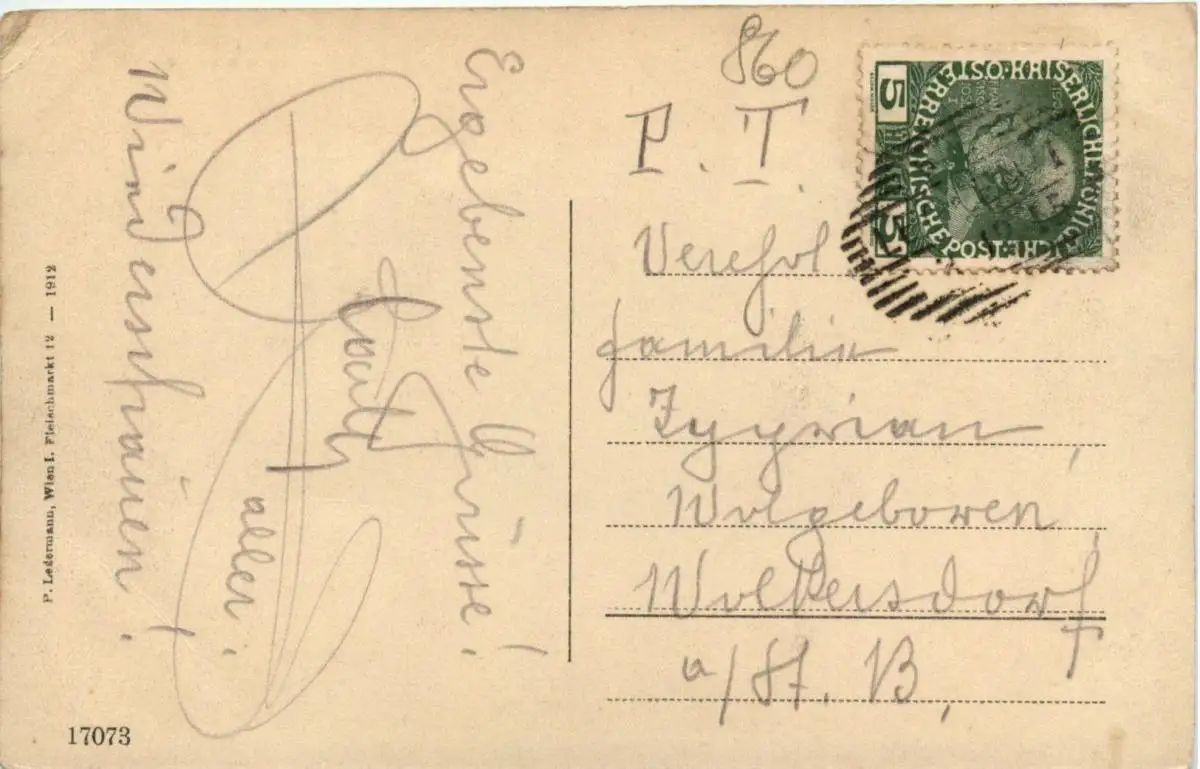 Ergebenste Grüsse!
aller.
Windersthauen!
P. Ledermann, Wien I. Fleischmarkt 12 — 1912
17073
860
P. T.
Verehrl
familie
Zyprian,
Wolgeboren
Wolkersdorf
a/St. B,
KAISERLICHE KÖNIGL
ÖSTERREICHISCHE POST
5 5